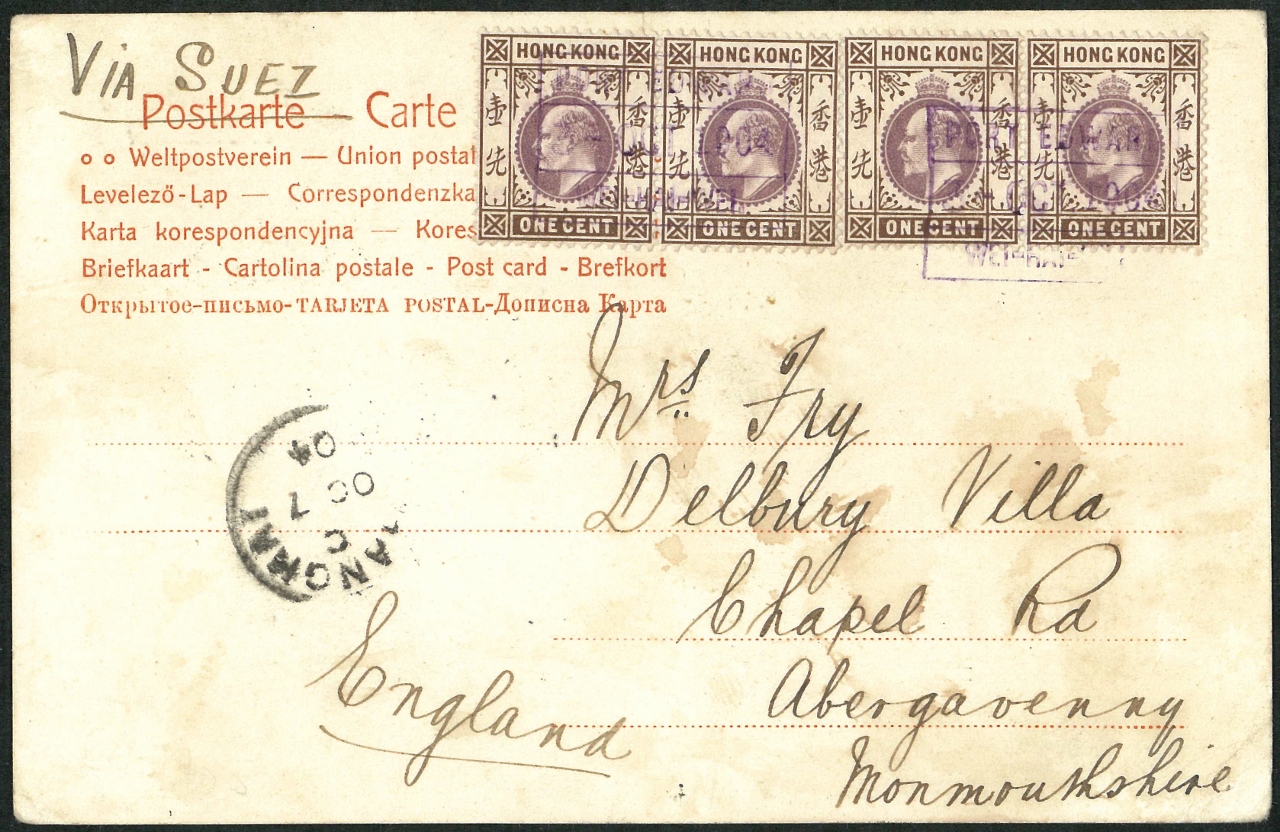 VIA SUEZ
Postkarte — Carte
Weltpostverein — Union postal
Levelező-Lap — Correspondenzka
Karta korespondencyjna — Kores
Briefkaart - Cartolina postale - Post card - Brefkort
Открытое-письмо-TARJETA POSTAL-Дописна Карта
HONG KONG
壹先
香港
ONE CENT
HONG KONG
壹先
香港
ONE CENT
HONG KONG
壹先
香港
ONE CENT
HONG KONG
壹先
香港
ONE CENT
PORT EDWAR
OCT 1904
WEI-HAI-
Mrs Fry
Delbury Villa
Chapel Rd
Abergavenny
Monmouthshire
England
ANGHAI
C
OC 7
04